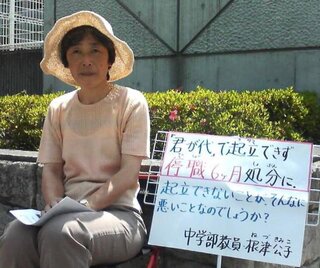 「君が代」で起立できず
停職6ヶ月処分に。
起立できないことが、そんなに
悪いことなのでしょうか?
中学部教員 根津公子